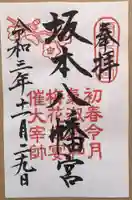 奉拝
坂本八幡宮
令和三年十二月二九日
初春令月
梅花宴
催大宰帥